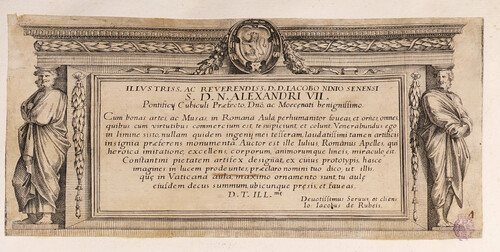 ILLVSTRISS. AC REVERENDISS. D.D. IACOBO NINIO SENENSI
S. D. N. ALEXANDRI VII.
Pontificij Cubiculi Præfecto. Dno. ac Mœcenati benignissimo.
Cum bonas artes, ac Musas in Romana Aula perhumaniter foueas, et omnes omnes,
quibus cum virtutibus commercium est, te suspiciunt, et colunt. Venerabundus ego
in limine sisto, nullam quidem ingenij mei tesseram, laudatissimi tamen artificis
insignia præferens monumenta. Auctor est ille Iulius Romanus Apelles, qui
heroica imitatione, excellens, corporum, animorumque lineis, miraculo est.
Constantini pietatem artifex designat, ex cuius prototypis, hasce
imagines in lucem prodeuntes, præclaro nomini tuo dico, ut illis,
quæ in Vaticana aula maximo ornamento sunt, tu aulæ
eiusdem decus summum, ubicunque præsis, et faueas.
D. T. ILL.mæ
Deuotissimus Seruus et cliens
Io. Iacobus de Rubeis.